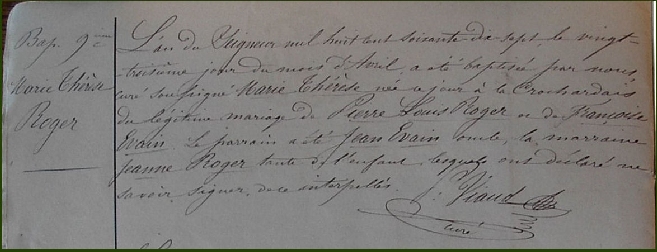 Bap. 9ème
Marie Thérèse
Roger
L'an du Seigneur mil huit cent soixante-dix-sept, le vingt-
-troisième jour du mois d'Avril, a été baptisée par nous,
curé soussigné Marie Thérèse, née ce jour à la Crochardais
du légitime mariage de Pierre Louis Roger et de Françoise
Evain. Le parrain a été Jean Evain oncle, la marraine
Jeanne Roger tante de l'enfant, lesquels ont déclaré ne
savoir signer, de ce interpellés.
J. Viaud
curé